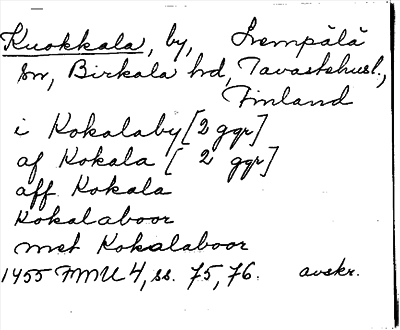 Kuokkala, by, Lempälä
sn, Birkala hd, Tavastehusl.,
Finland
i Kokalaby [2 ggr]
af Kokala [ 2 ggr]
aff Kokala
Kokalaboor
met Kokalaboor
1455 FMU 4, ss. 75, 76. avskr.